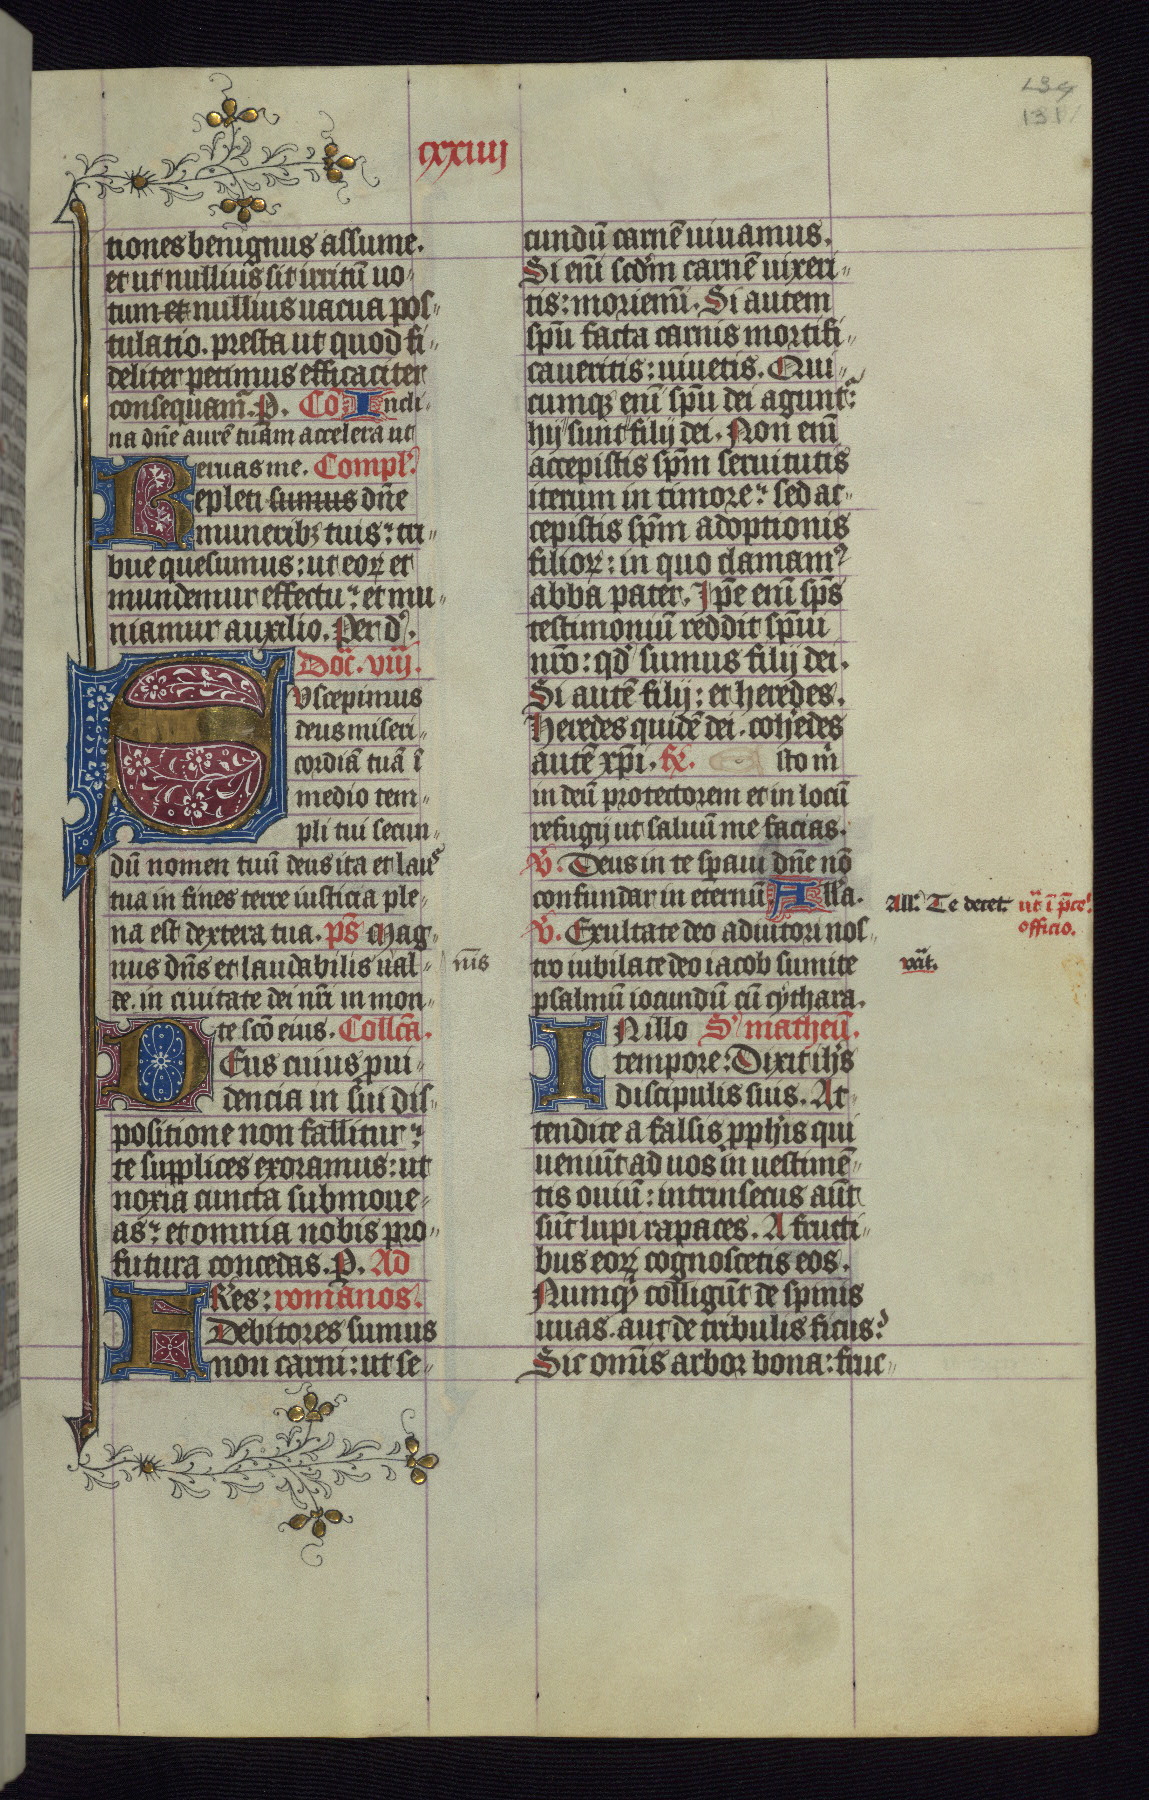 cxxiiij
tiones benignus assume.
et ut nullius sit irritū uo-
tum et nullius uacua pos-
tulatio. presta ut quod fi-
deliter petimus efficaciter
consequam̄. P. Cō Incli-
na dn̄e aurē tuam accelera ut
eruas me. Compl̄.
Repleti sumus dn̄e
munerib; tuis: tri-
bue quesumus: ut eoꝝ et
mundemur effectu: et mu-
niamur auxilio. Per d.
Do͞c. viij.
Suscepimus
deus miseri-
cordiā tuā ī
medio tem-
pli tui secun-
dū nomen tuū deus ita et laus
tua in fines terre iusticia ple-
na est dextera tua. ps̄ Mag-
nus dn̄s et laudabilis ual- nīs
de. in ciuitate dei nr̄i in mon-
te sc̄o eius. Collc̄a.
Deus cuius pui-
dencia in sui dis-
positione non fallitur:
te supplices exoramus: ut
noxia cuncta submoue-
as: et omnia nobis pro-
futura concedas. P. Ad
FRēs: romanos.
Debitores sumus
non carni: ut se-
cundū carnē uiuamus.
Si eni͞ scd̄m carnē uixeri-
tis: moriemi͞. Si autem
spū facta carnis mortifi-
caueritis: uiuetis. Qui-
cumqꝫ eni͞ spū dei agunt᷑:
hij sunt filij dei. Non eni͞
accepistis spm̄ seruitutis
iterum in timore: sed ac-
cepistis spm̄ adoptionis
filioꝝ: in quo clamamꝰ
abba pater. Ip̄e eni͞ sp̄s
testimoniū reddit spūi
nr̄o: qd̓ sumus filij dei.
Si autē filij: et heredes.
Heredes quidē dei. coheredes
autē xp̄i. Gͬ. isto m̄
in deū protectorem et in locū
refugij ut saluū me facias.
V̄. Deus in te spaui dn̄e nō
confundar in eternū Al̄l̄a.
All. Te decet. ut̄ ī p̄ce.
officio.
V̄. Exultate deo adiutori nos-
tro iubilate deo iacob sumite vacat.
psalmū iocundū cū cythara.
IN illo S. matheū.
tempore: Dixit ih̄s
discipulis suis. At-
tendite a falsis pph̄is qui
ueniūt ad uos in uestimē-
tis ouiū: intrinsecus aūt
sūt lupi rapaces. A fructi-
bus eoꝝ cognoscetis eos.
Numqͥd colligūt de spinis
uuas. aut de tribulis ficus:
Sic omīs arbor bona: fruc-